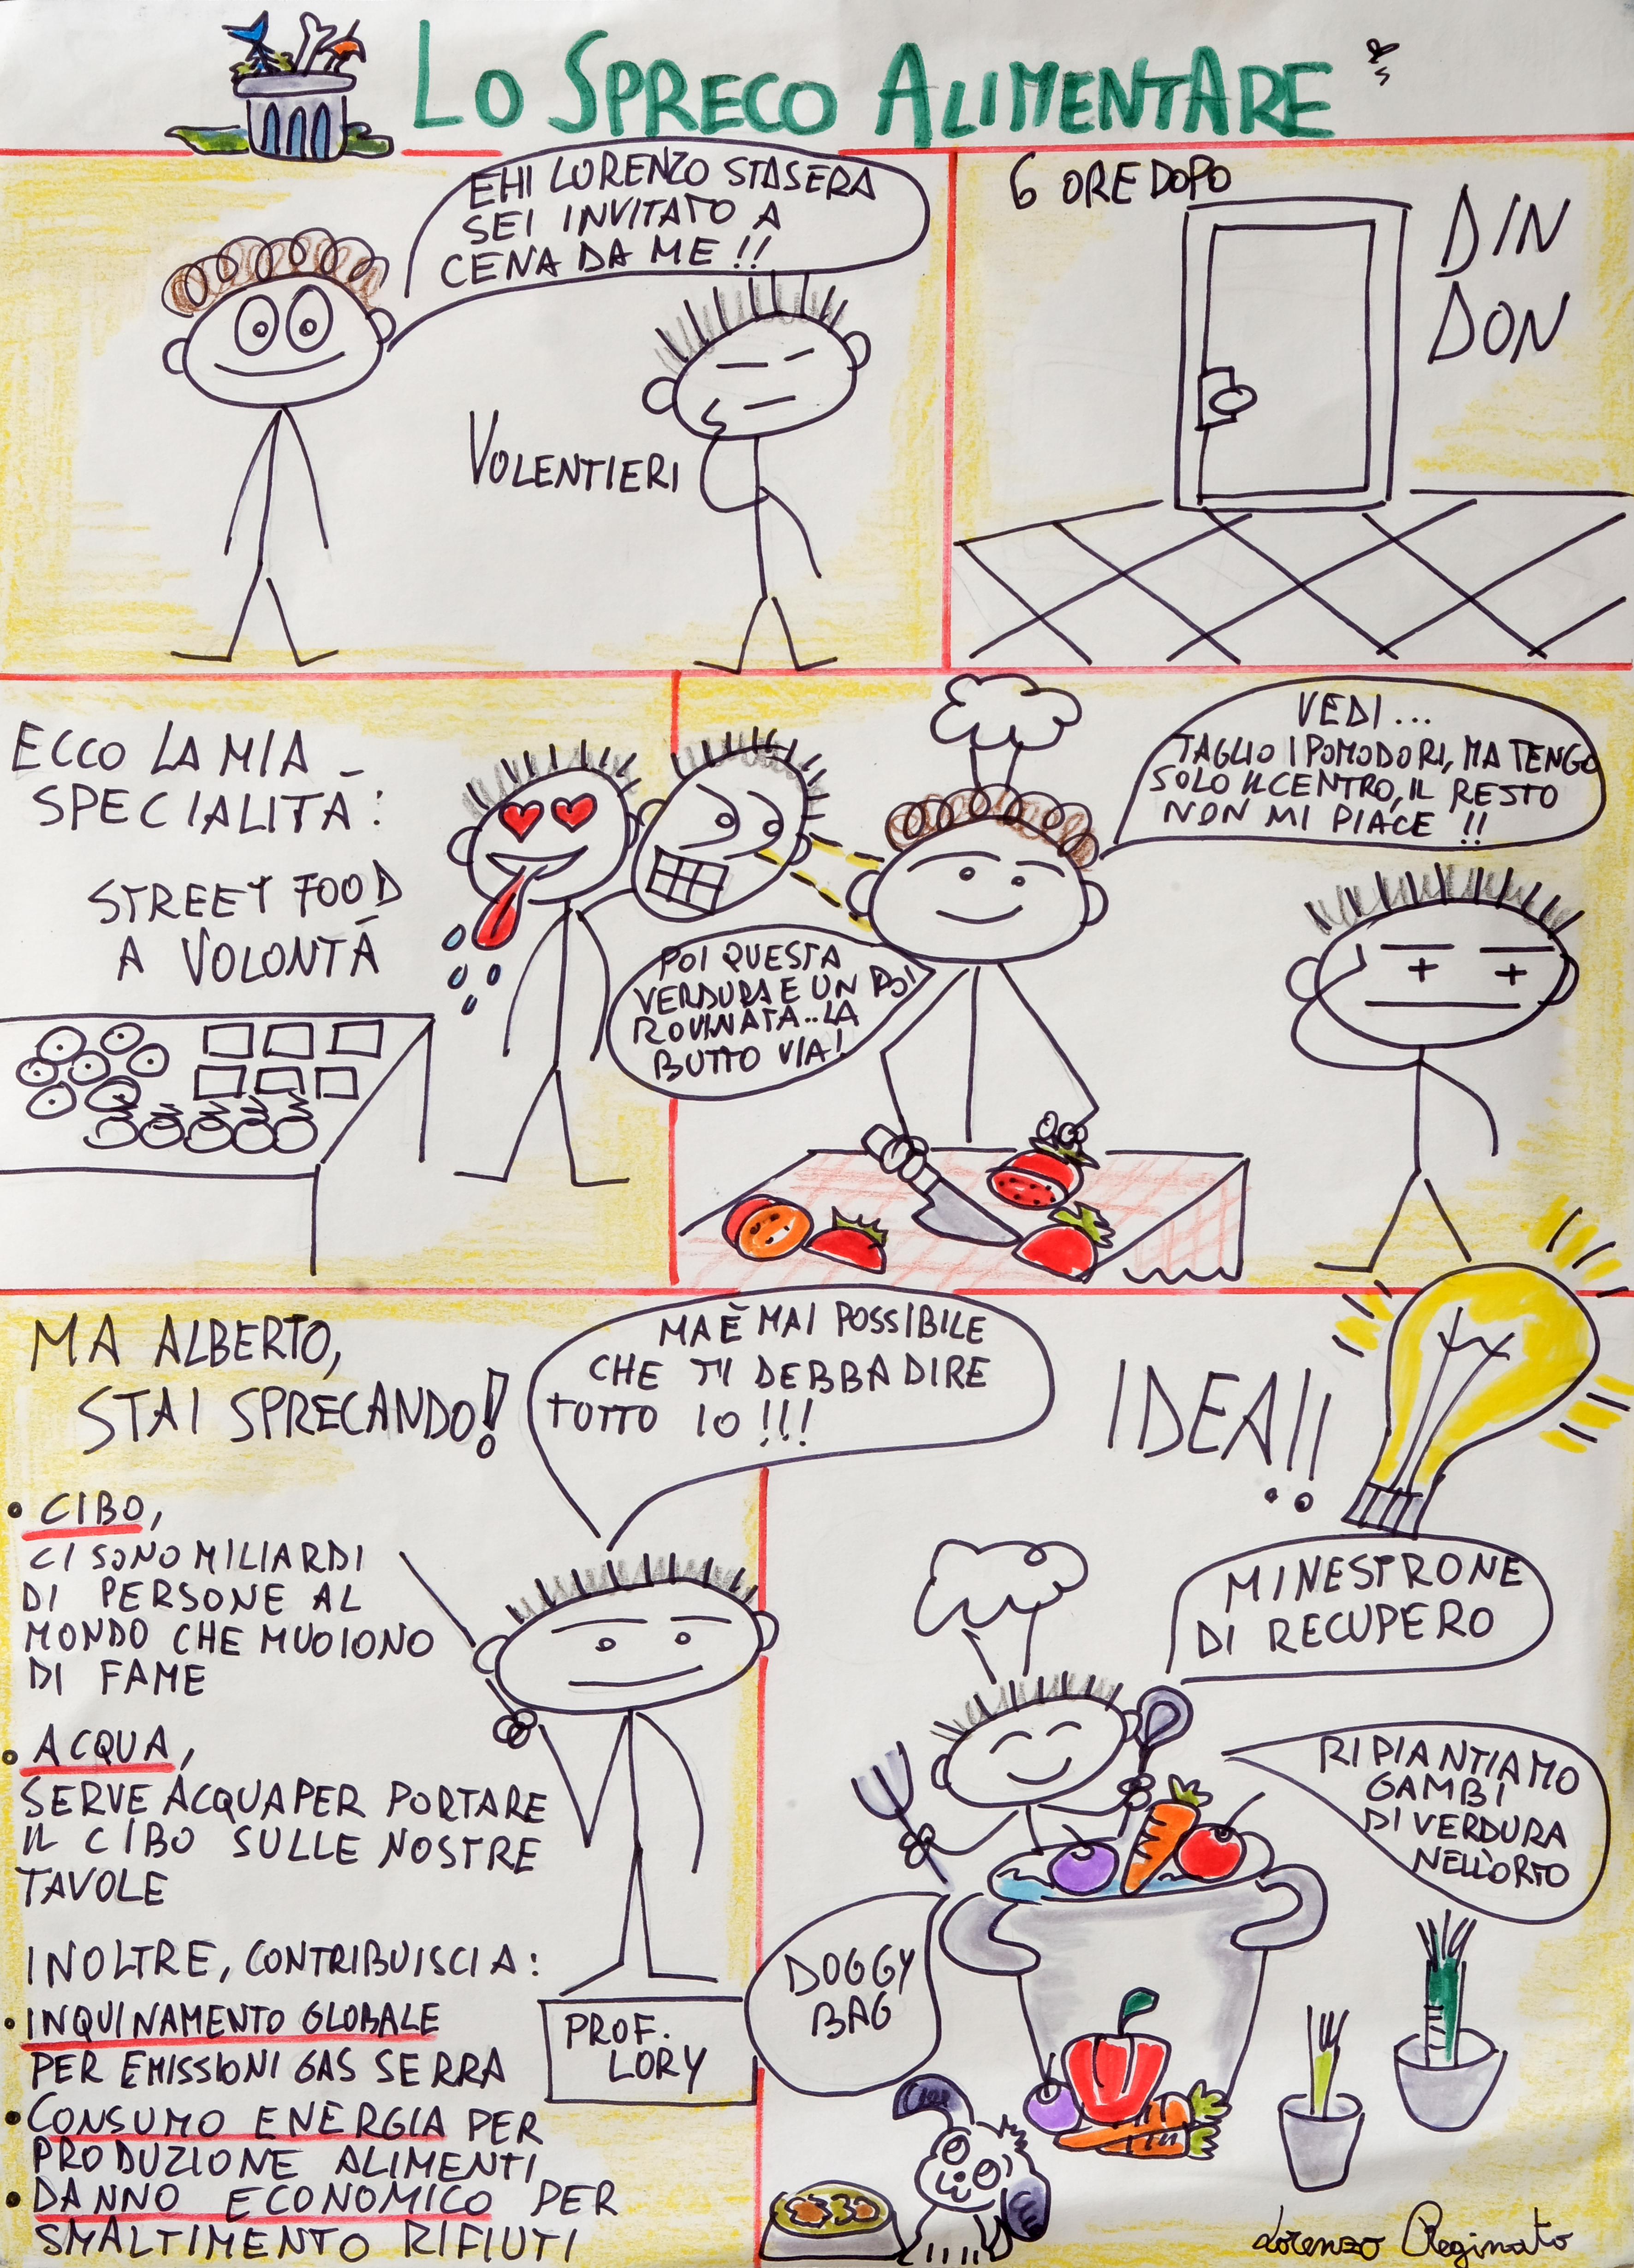 LO SPRECO ALIMENTARE
EHI LORENZO STASERA
SEI INVITATO A
CENA DA ME !!
VOLENTIERI
6 ORE DOPO
DIN
DON
ECCO LA MIA
SPECIALITÀ:
STREET FOOD
A VOLONTÀ
VEDI...
TAGLIO I POMODORI, MA TENGO
SOLO IL CENTRO, IL RESTO
NON MI PIACE !!
POI QUESTA
VERDURA E UN PO'
ROVINATA.. LA
BUTTO VIA!
MA ALBERTO,
STAI SPRECANDO!
MA È MAI POSSIBILE
CHE TI DEBBA DIRE
TUTTO IO !!!
• CIBO,
CI SONO MILIARDI
DI PERSONE AL
MONDO CHE MUOIONO
DI FAME
• ACQUA,
SERVE ACQUA PER PORTARE
IL CIBO SULLE NOSTRE
TAVOLE
INOLTRE, CONTRIBUISCI A:
• INQUINAMENTO GLOBALE
PER EMISSIONI GAS SERRA
• CONSUMO ENERGIA PER
PRODUZIONE ALIMENTI
• DANNO ECONOMICO PER
SMALTIMENTO RIFIUTI
PROF.
LORY
IDEA!!
MINESTRONE
DI RECUPERO
RIPIANTIAMO
GAMBI
DI VERDURA
NELL'ORTO
DOGGY
BAG
Lorenzo Reginato